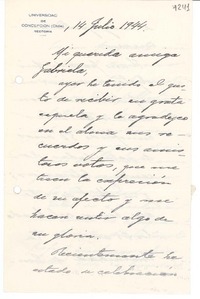 4241
UNIVERSIDAD DE
CONCEPCION (CHILE)
RECTORIA
, 14 Julio 1944.
Mi querida amiga
Gabriela,
ayer he tenido el gus-
to de recibir su grata
esquela y le agradezco
en el alma sus re-
cuerdos y sus
votos, que me
traen la expresión
de su afecto y me
hacen sentir algo de
su gloria.
Recientemente ha
estado a